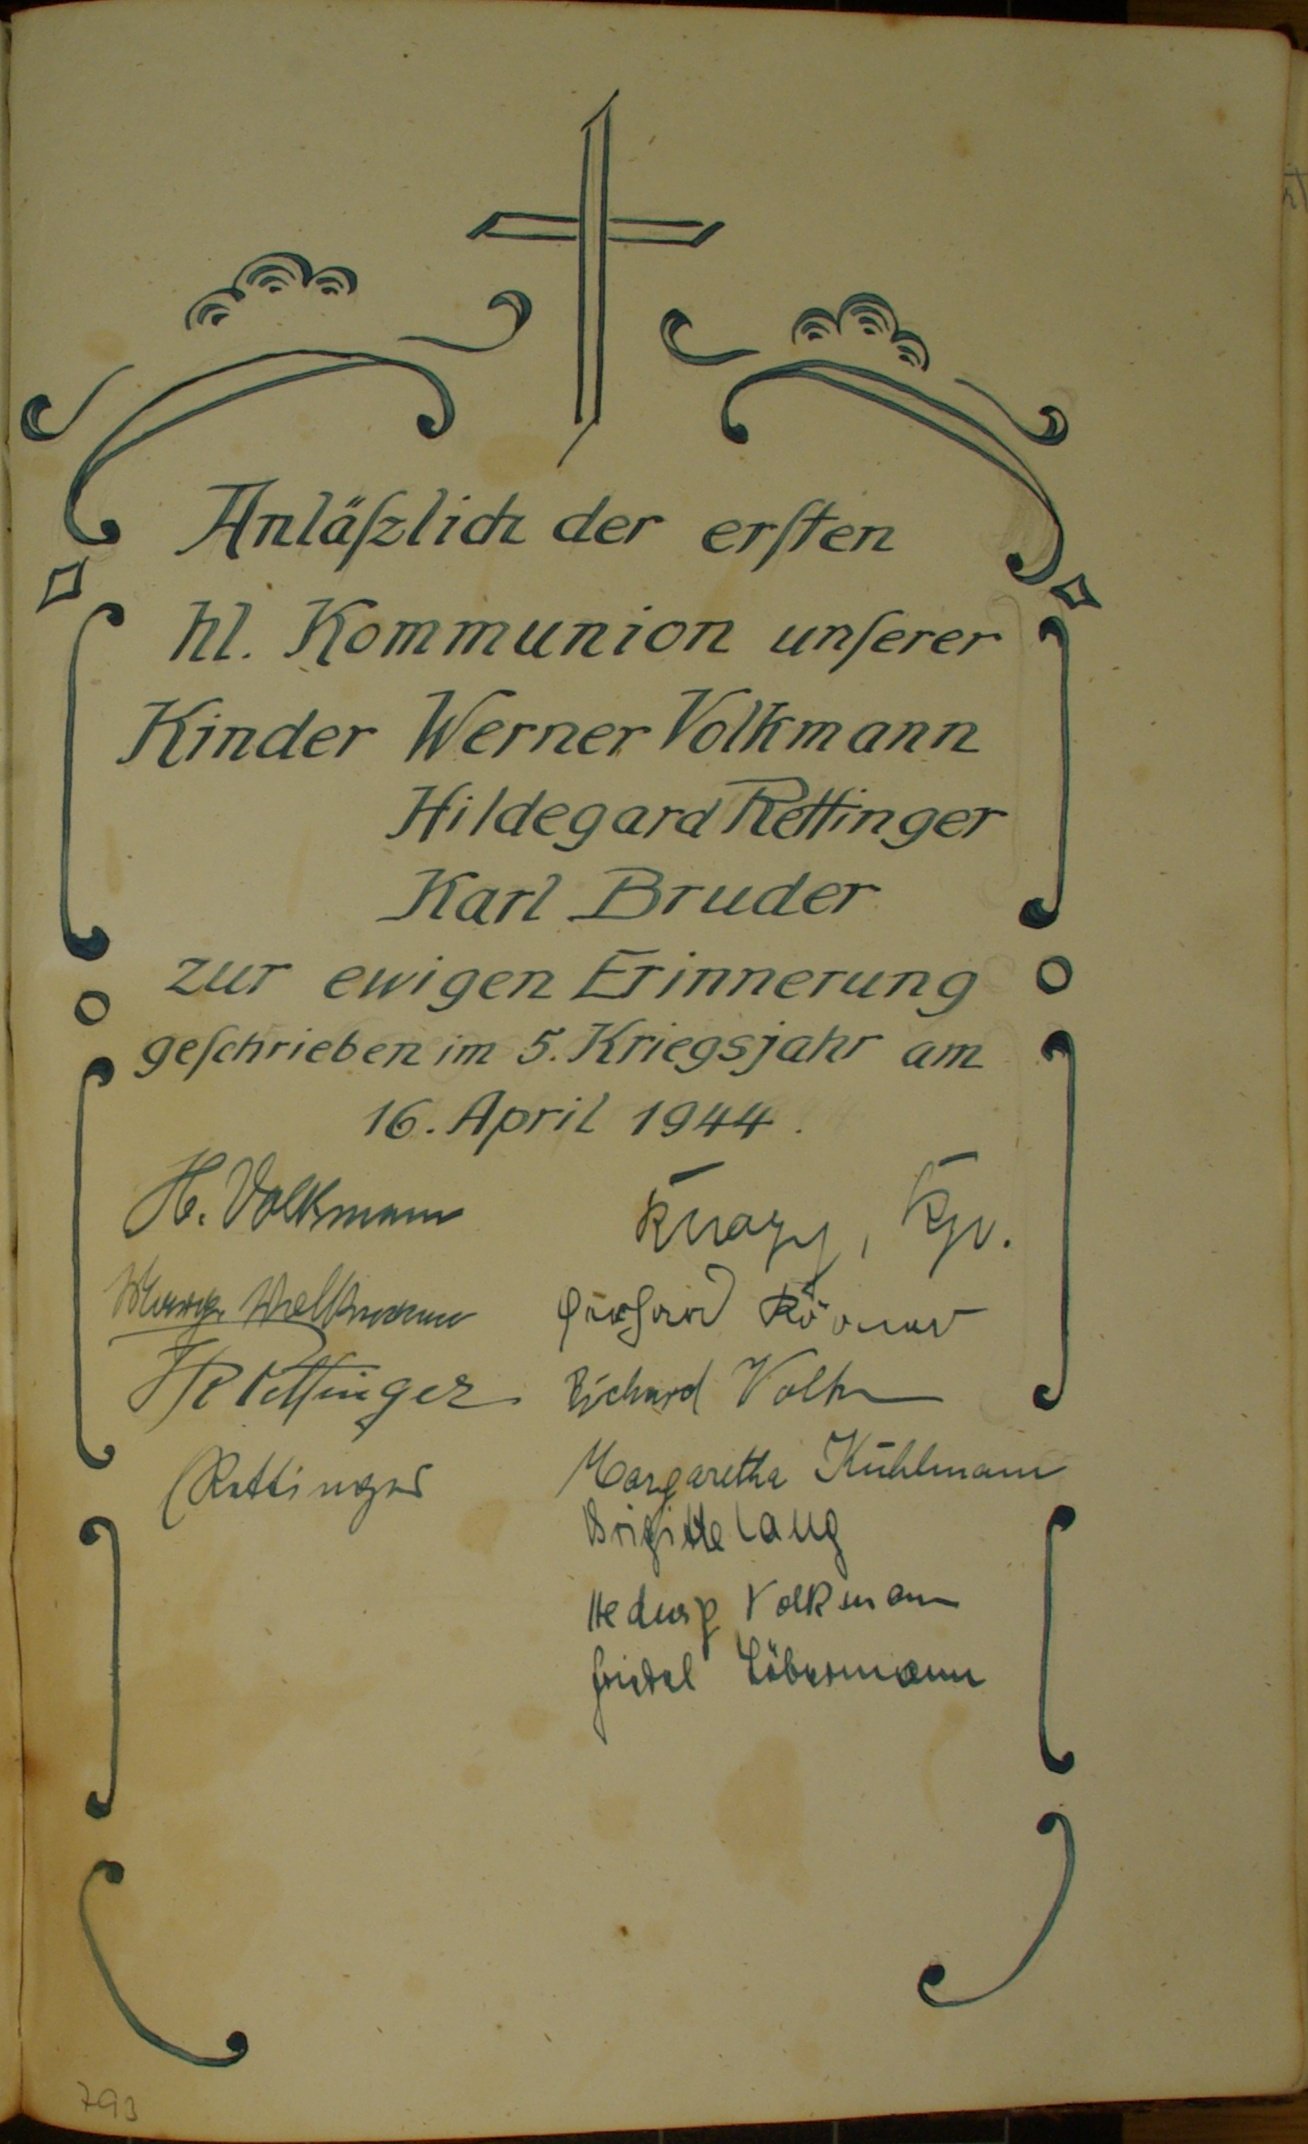 Anläſzlich der erſten
hl. Kommunion unſerer
Kinder Werner Volkmann
Hildegard Rettinger
Karl Bruder
zur ewigen Erinnerung
geſchrieben im 5. Kriegsjahr am
16. April 1944.
H. Volkmann
Marg. Volkmann
Rettinger
Rettinger
Knapp, Kpl.
Gerhard Körner
Richard Volk
Margaretha Kühlmann
Brigitte Lang
Hedwig Volkmann
Friedel Löbermann
793